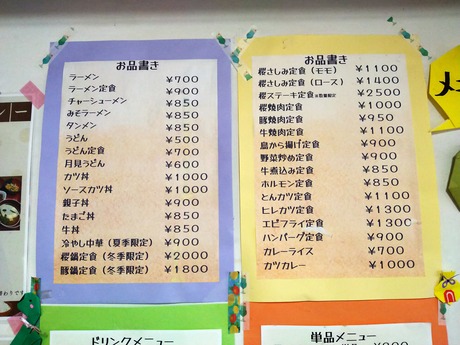 お品書き
ラーメン ¥700
ラーメン定食 ¥900
チャーシューメン ¥850
みそラーメン ¥850
タンメン ¥850
うどん ¥500
うどん定食 ¥700
月見うどん ¥600
カツ丼 ¥1000
ソースカツ丼 ¥1000
親子丼 ¥900
たまご丼 ¥850
牛丼 ¥850
冷やし中華(夏季限定) ¥900
桜鍋定食(冬季限定) ¥2000
豚鍋定食(冬季限定) ¥1800
ドリンクメニュー
お品書き
桜さしみ定食(モモ) ¥1100
桜さしみ定食(ロース) ¥1400
桜ステーキ定食 ¥2500
桜焼肉定食 ¥1000
豚焼肉定食 ¥950
牛焼肉定食 ¥1100
鳥から揚げ定食 ¥900
野菜炒め定食 ¥900
牛煮込み定食 ¥850
ホルモン定食 ¥850
とんカツ定食 ¥1100
ヒレカツ定食 ¥1300
エビフライ定食 ¥1300
ハンバーグ定食 ¥900
カレーライス ¥700
カツカレー ¥1000
単品メニュー